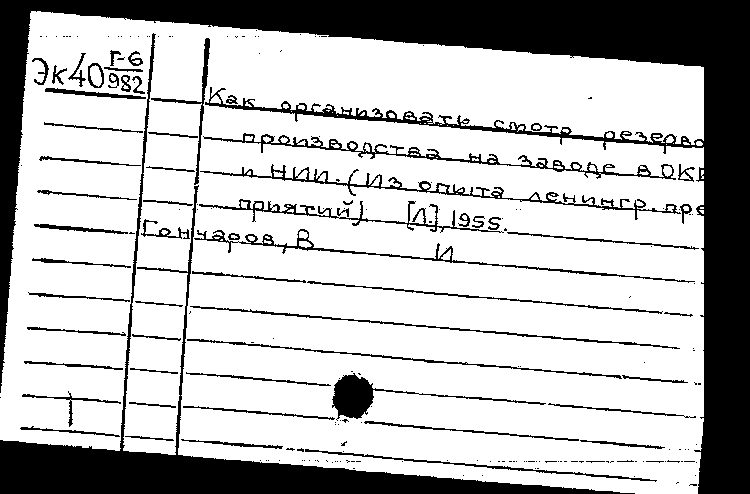 Эк40 Г-6/982
Как организовать смотр резерво
производства на заводе в ОКБ
и НИИ. (Из опыта ленингр. пре
приятий). [Л.], 1955.
Гончаров, В И
1